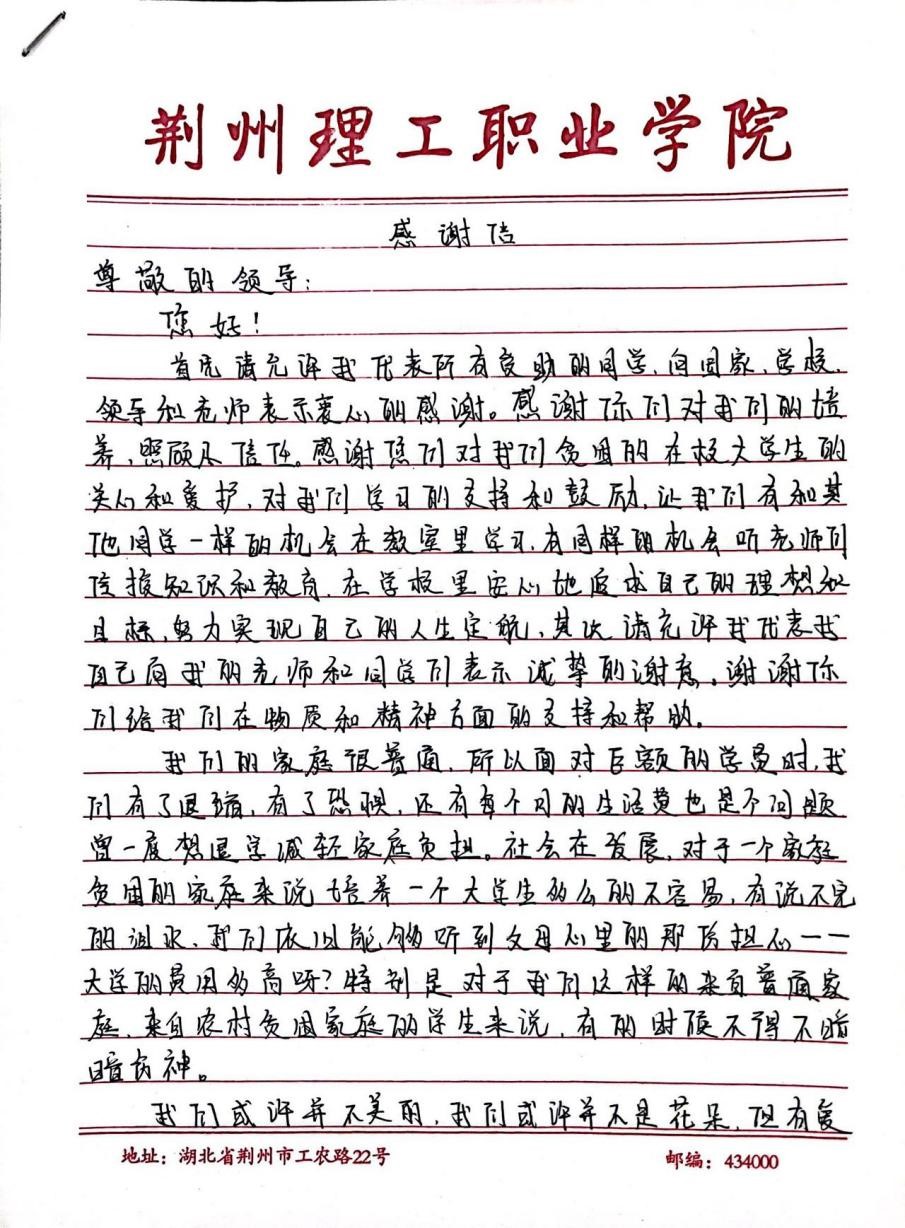 荆州理工职业学院
感谢信
尊敬的领导：
您好！
首先请允许我代表所有受助的同学，向国家，学校，
领导和老师表示衷心的感谢。感谢你们对我们的培
养，照顾及信任。感谢您们对我们贫困的在校大学生的
关心和爱护，对我们学习的支持和鼓励，让我们有和其
他同学一样的机会在教室里学习，有同样的机会听老师们
传授知识和教育，在学校里安心地追求自己的理想和
目标，努力实现自己的人生定航，其次请允许我代表我
自己向我的老师和同学们表示诚挚的谢意。谢谢你
们给我们在物质和精神方面的支持和帮助。
我们的家庭很普通，所以面对巨额的学费时，我
们有了退缩，有了恐惧，还有每个月的生活费也是个问题
曾一度想退学减轻家庭负担。社会在发展，对于一个家庭
贫困的家庭来说培养一个大学生多么的不容易，有说不完
的泪水，我们依旧能够听到父母心里的那份担心——
大学的费用多高呀？特别是对于我们这样的来自普通家
庭，来自农村贫困家庭的学生来说，有的时候不得不暗
暗伤神。
我们或许并不美丽，我们或许并不是花朵，但有爱
地址：湖北省荆州市工农路22号
邮编：434000